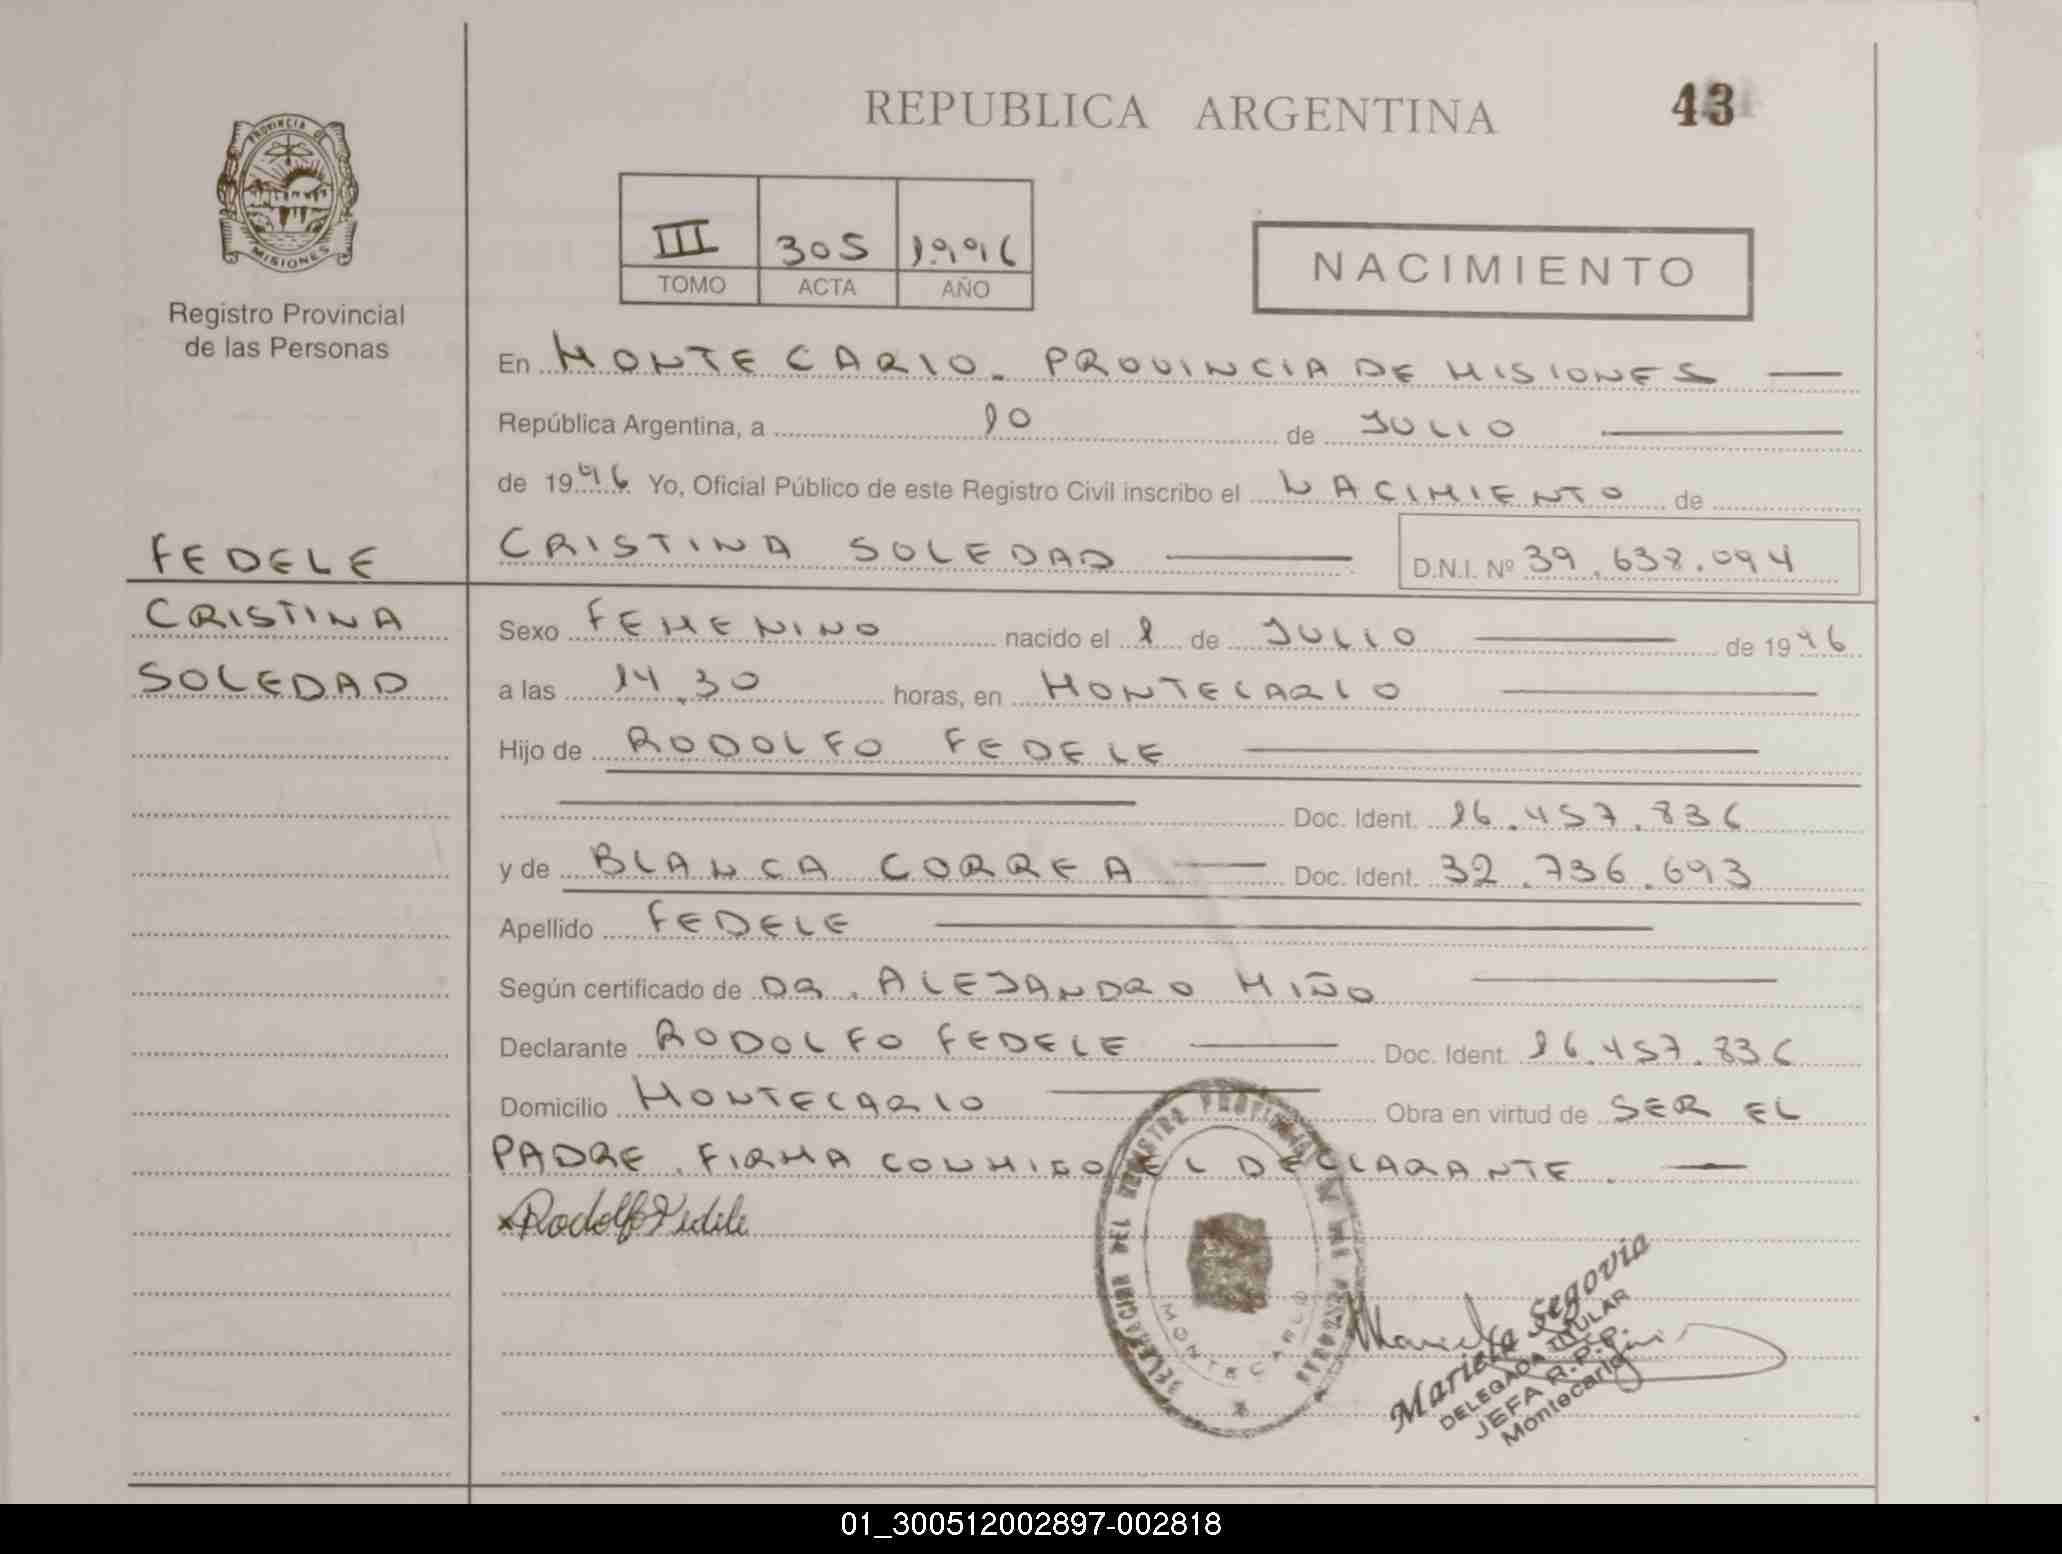 REPUBLICA ARGENTINA
43
PROVINCIA DE
MISIONES
Registro Provincial
de las Personas
III 305 1996
TOMO ACTA AÑO
NACIMIENTO
En MONTECARLO. PROVINCIA DE MISIONES
República Argentina, a 10 de JULIO
de 1996 Yo, Oficial Público de este Registro Civil inscribo el NACIMIENTO de
CRISTINA SOLEDAD D.N.I. Nº 39.638.094
FEDELE
CRISTINA
SOLEDAD
Sexo FEMENINO nacido el 1 de JULIO de 1996
a las 14.30 horas, en MONTECARLO
Hijo de RODOLFO FEDELE
Doc. Ident. 16.457.836
y de BLANCA CORREA Doc. Ident. 32.736.693
Apellido FEDELE
Según certificado de DR. ALEJANDRO MIÑO
Declarante RODOLFO FEDELE Doc. Ident. 16.457.836
Domicilio MONTECARLO Obra en virtud de SER EL
PADRE. FIRMA CONMIGO EL DECLARANTE.
x Rodolfo Fedele
REGISTRO PROVINCIAL
DELEGACION 134
MONTECARLO
Mariela Segovia
DELEGADA TITULAR
JEFA R.P.P.
Montecarlo
01_300512002897-002818